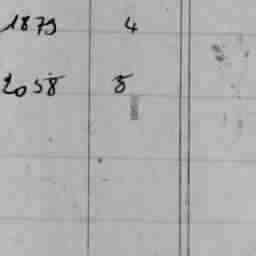 1879 4
2058 8